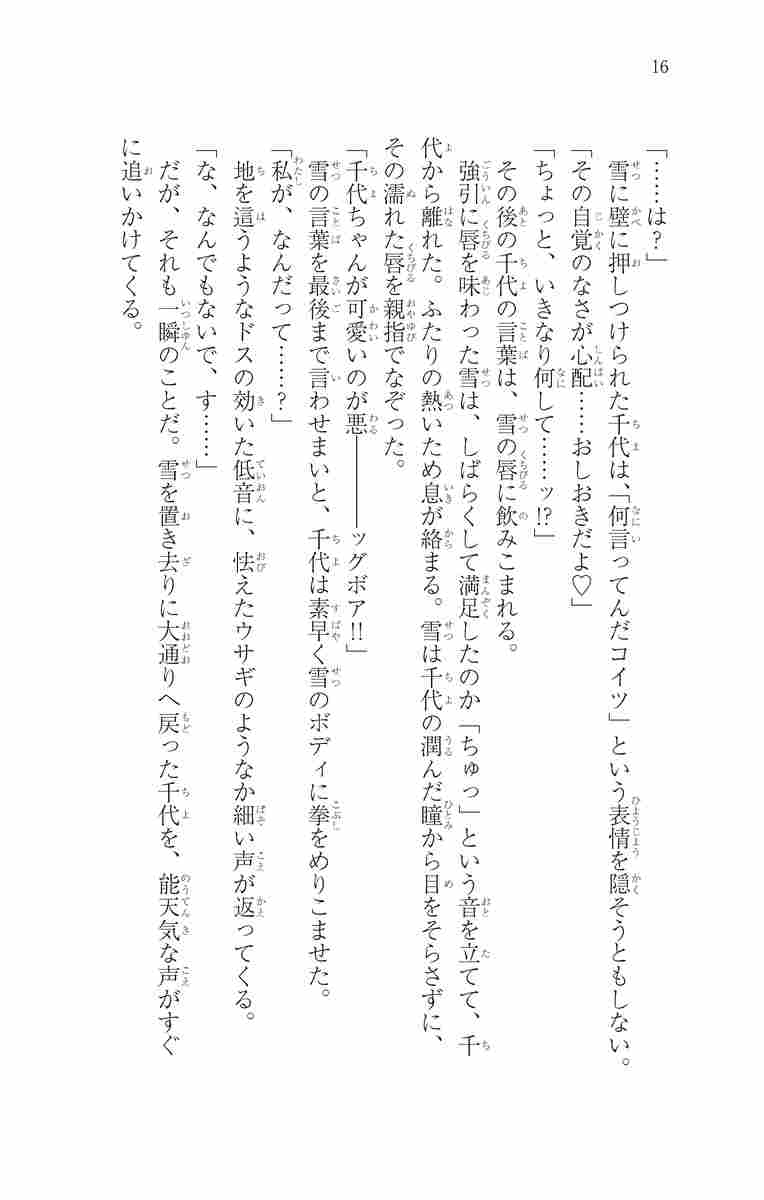 16
「……は？」
雪に壁に押しつけられた千代は、「何言ってんだコイツ」という表情を隠そうともしない。
「その自覚のなさが心配……おしおきだよ♡」
「ちょっと、いきなり何して……ッ!?」
その後の千代の言葉は、雪の唇に飲みこまれる。
強引に唇を味わった雪は、しばらくして満足したのか「ちゅっ」という音を立てて、千
代から離れた。ふたりの熱いため息が絡まる。雪は千代の潤んだ瞳から目をそらさずに、
その濡れた唇を親指でなぞった。
「千代ちゃんが可愛いのが悪――――ッグボア!!」
雪の言葉を最後まで言わせまいと、千代は素早く雪のボディに拳をめりこませた。
「私が、なんだって……？」
地を這うようなドスの効いた低音に、怯えたウサギのようなか細い声が返ってくる。
「な、なんでもないで、す……」
だが、それも一瞬のことだ。雪を置き去りに大通りへ戻った千代を、能天気な声がすぐ
に追いかけてくる。